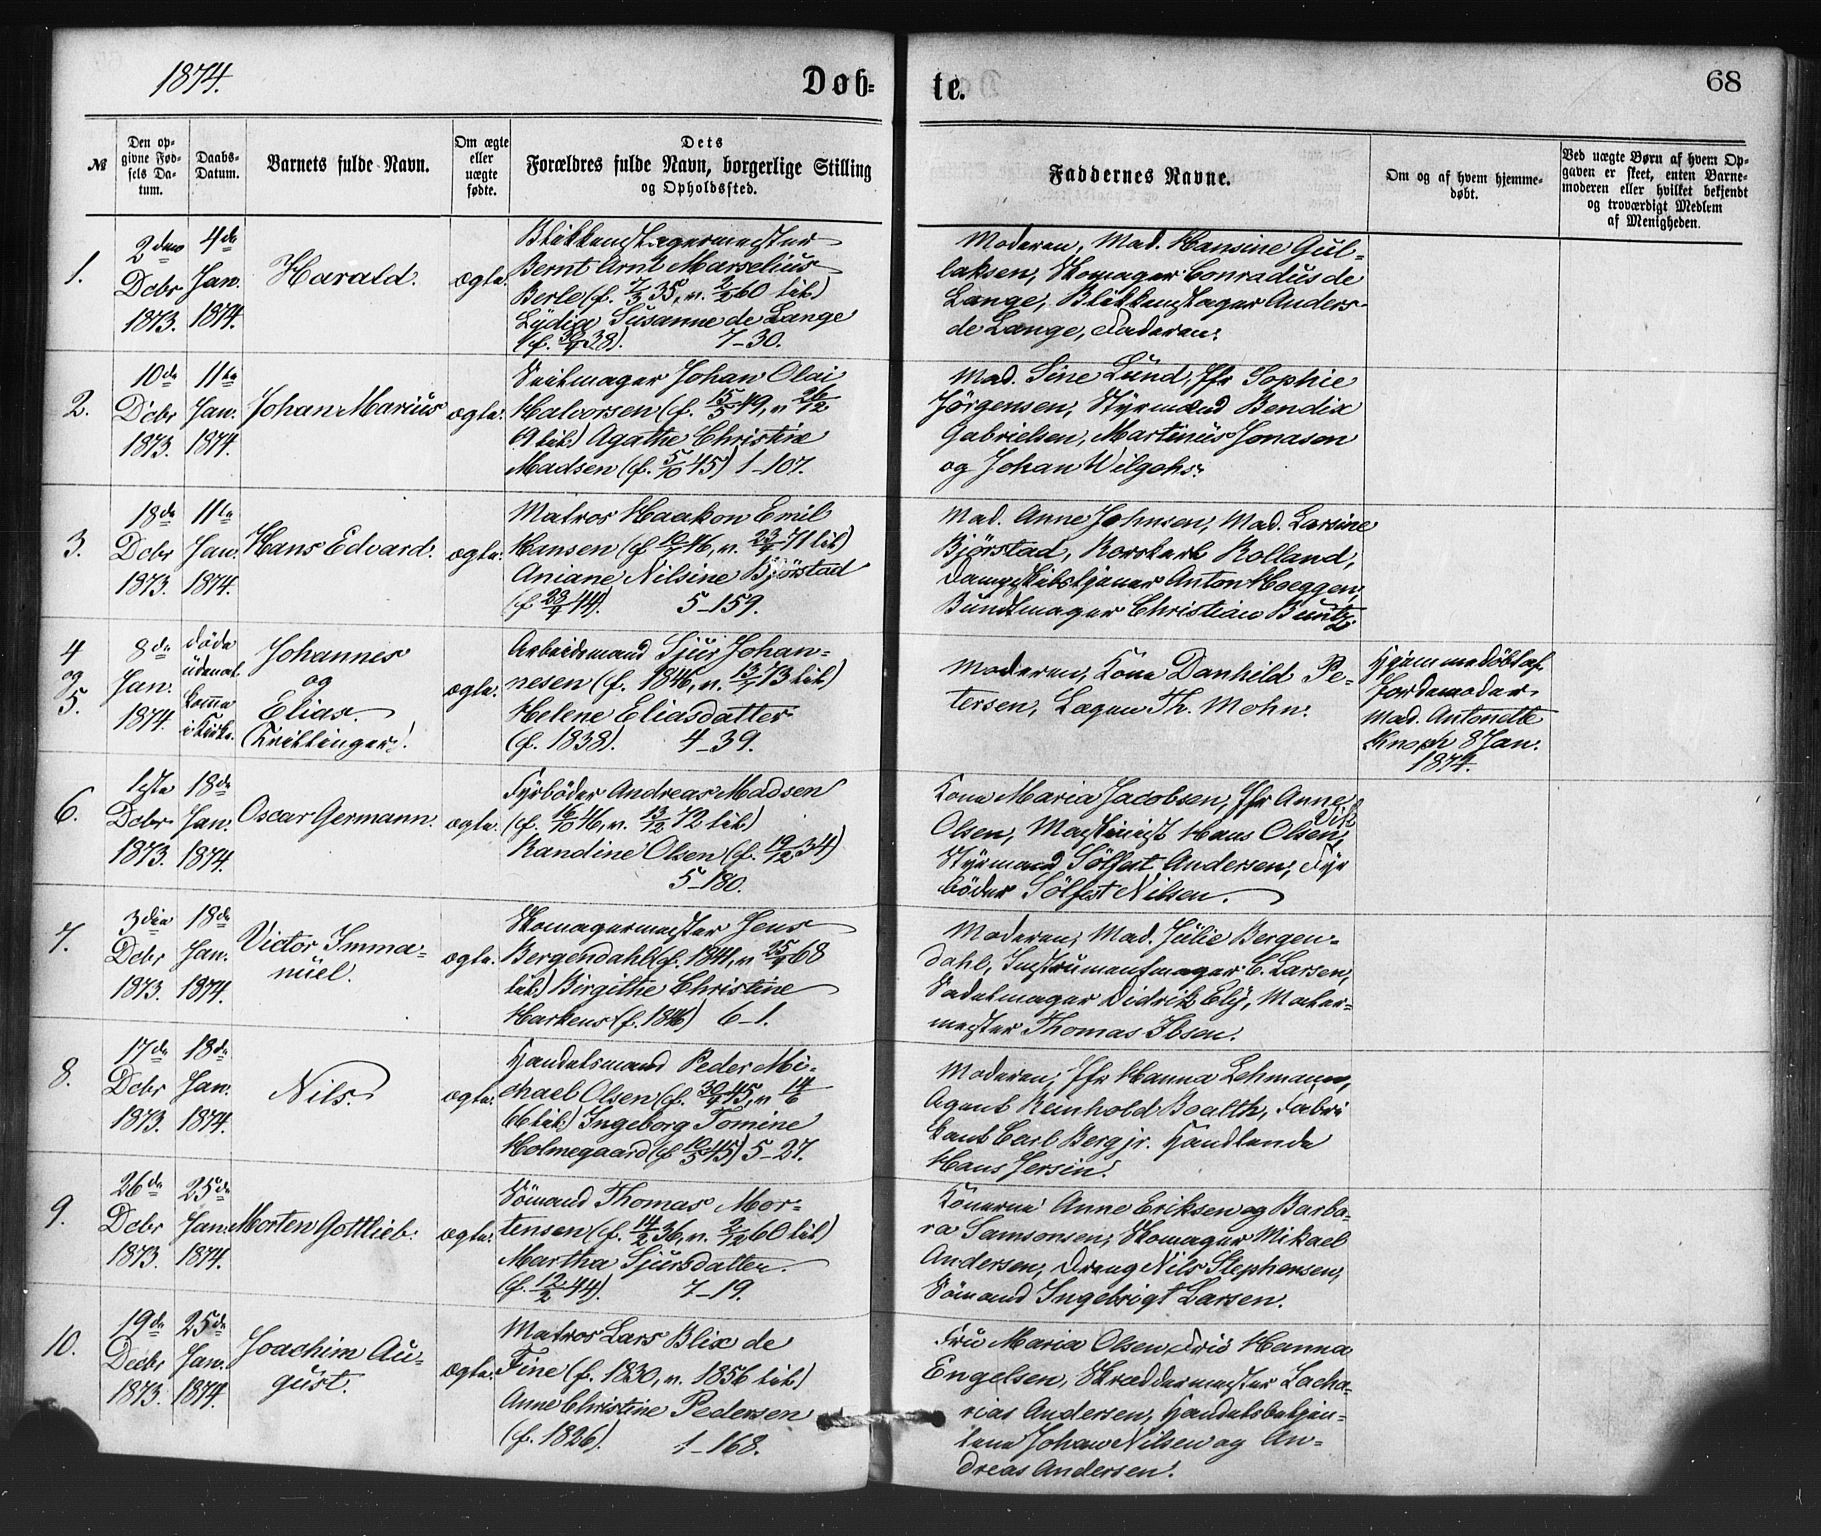 1874.
Døb-
te.
68
№
Den op-
givne Fød-
sels Da-
tum.
Daabs-
Datum.
Barnets fulde Navn.
Om ægte
eller
uægte
fødte.
Dets
Forældres fulde Navn, borgerlige Stilling
og Opholdssted.
Faddernes Navne.
Om og af hvem hjemme-
døbt.
Ved uægte Børn af hvem Op-
gaven er skeet, enten Barne-
moderen eller hvilket bekjendt
og troværdigt Medlem
af Menigheden.
1.
2den
Dcbr
1873.
4de
Jan.
1874.
Harald.
ægte.
Blikkenslagermester
Bernt Arnt Marselius
Berle (f. 7/3 35, v. 2/2 60 til)
Lydia Susanne de Lange
(f. 38). 7-30.
Moderen, Mad. Hansine Gul-
laksen, Skomager Conradus de
Lange, Blikkenslager Anders
de Lange, Faderen.
2.
10de
Dcbr
1873.
11te
Jan.
1874.
Johan Marius
ægte.
Seilmager Johan Olai
Halvorsen (f. 15/5 49, v. 26/12
69 til) Agathe Christine
Madsen (f. 5/10 45) 1-107.
Mad. Sine Lund, Jfr Sophie
Jörgensen, Styrmænd Bendix
Gabrielsen, Martinus Jonasen
og Johan Wilgohs.
3.
18de
Dcbr
1873.
11te
Jan.
1874.
Hans Edvard.
ægte.
Matros Haakon Emil
Hansen (f 46, v. 71 til)
Aniane Nilsine Björstad
(f 44). 5-159.
Mad. Anne Johnsen, Mad. Larsine
Björstad, Rolland,
Dampskibstjener Anton Hoeggen,
Buntmager Christian Buntz.
4
og
5.
8de
Jan.
1874.
döde
uden at
komme
i Kirke.
Johannes
og
Elias.
(Tvillinger).
ægte.
Arbeidsmand Sjur Johan-
nesen (f. 1846, v. 73 til)
Helene Eliasdatter
(f. 1838). 4-39.
Moderen, Kone Danhild Pe-
tersen, Lægen Th. Mohn.
Hjemmedöbt af
Jordemoder
Mad. Antonette
Knoph 8 Jan.
1874.
6.
1ste
Dcbr.
1873.
18de
Jan.
1874.
Oscar Germann.
ægte.
Fyrböder Andreas Madsen
(f. 16/10 46, v. 13/12 72 til)
Randine Olsen (f. 19/12 34)
5-180.
Kone Maria Jacobsen, Jfr Anne
Olsen, Maskinist Hans Olsen
Styrmand Sölfest Andersen, Fyr
böder Sölfest Nilsen.
7.
3die
Dcbr
1873.
18de
Jan.
1874.
Victor Imma-
nuel.
ægte.
Skomagermester Jens
Bergendahl (f. 1841, v. 25/9 68
til) Birgithe Christine
Harkens (f. 1846) 6-1.
Moderen, Mad. Julie Bergen-
dahl, Instrumentmager C. Larsen,
Sadelmager Didrik Ely, Maler-
mester Thomas Ibsen.
8.
17de
Dcbr
1873.
18de
Jan.
1874.
Nils.
ægte.
Handelsmand Peder Mi-
chael Olsen (f. 30/9 45, v 14/6
66 til) Ingeborg Tomine
Holmegaard (f 10/5 45) 5-27.
Moderen, Jfr Hanna Lehmann,
Agent Reinhold Boalth, Fabri
kant Carl Berg jr. Handlende
Hans Jersin.
9.
26de
Dcbr
1873.
25de
Jan.
1874.
Morten Gottlieb.
ægte.
Sömand Thomas Mor-
tensen (f. 14/2 36, v. 2/12 60 til)
Martha Sjursdatter
(f. 12/2 44). 7-19.
Konerne Anne Eriksen og Barba-
ra Samsonsen, Skomager Mikael
Andersen, Dreng Nils Stephensen,
Sömand Ingebrigt Larsen.
10.
19de
Decbr
1873.
25de
Jan.
1874.
Joachim Au-
gust.
ægte.
Matros Lars Blix de
Fine (f. 1830, v. 1856 til)
Anne Christine Pedersen
(f. 1826). 1-168.
Fru Maria Olsen, Fru Hanna
Engelsen, Skræddermester Zacha-
rias Andersen, Handelsbetjen-
tene Johan Nilsen og An-
dreas Andersen.